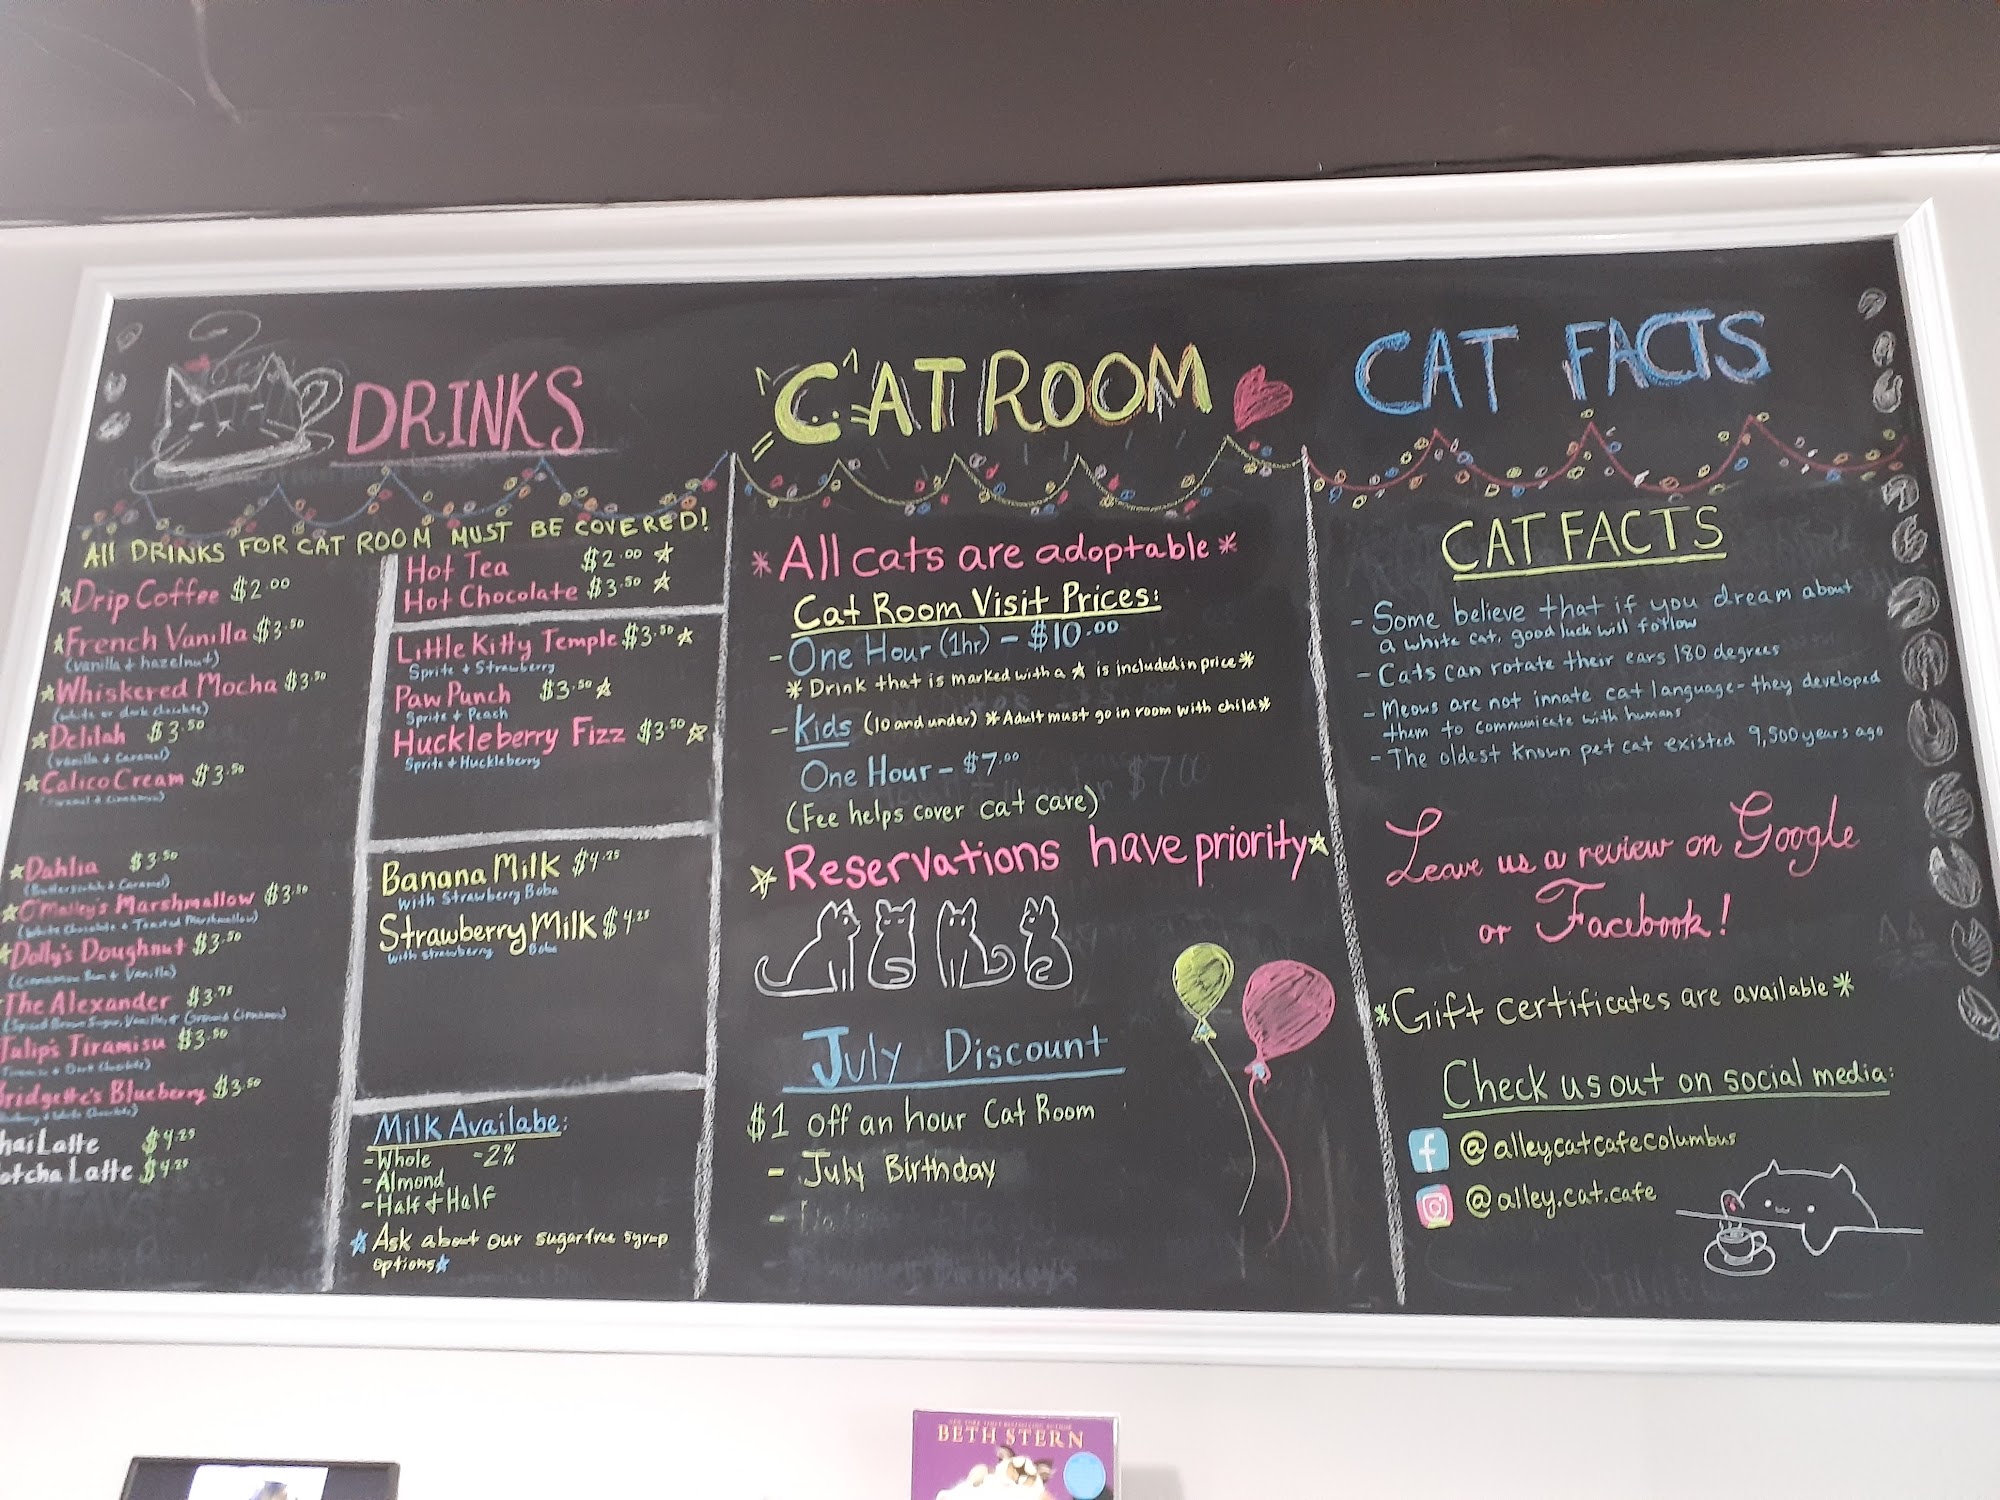 DRINKS
All DRINKS FOR CAT ROOM MUST BE COVERED!
☆Drip Coffee $2.00
☆French Vanilla $3.50
(vanilla + hazelnut)
☆Whiskered Mocha $3.50
(white or dark chocolate)
☆Delilah $3.50
(vanilla & caramel)
☆Calico Cream $3.50
(caramel & cinnamon)
☆Dahlia $3.50
(Butterscotch & Caramel)
☆O'Malley's Marshmallow $3.50
(White Chocolate & Toasted Marshmallow)
☆Dolly's Doughnut $3.50
(Cinnamon Bun & Vanilla)
The Alexander $3.75
(Spiced Brown Sugar, Vanilla, & Ground Cinnamon)
Tulip's Tiramisu $3.50
Tiramisu & Dark Chocolate)
Bridgette's Blueberry $3.50
& White Chocolate)
hai Latte $4.25
atcha Latte $4.25
Hot Tea $2.00 ☆
Hot Chocolate $3.50 ☆
Little Kitty Temple $3.50 ☆
Sprite + Strawberry
Paw Punch $3.50 ☆
Sprite + Peach
Huckleberry Fizz $3.50 ☆
Sprite + Huckleberry
Banana Milk $4.25
with Strawberry Boba
Strawberry Milk $4.25
with strawberry Boba
Milk Availabe:
-Whole -2%
-Almond
-Half & Half
☆Ask about our sugarfree syrup
options☆
CAT ROOM
*All cats are adoptable*
Cat Room Visit Prices:
- One Hour (1hr) - $10.00
* Drink that is marked with a ☆ is included in price*
- Kids (10 and under) *Adult must go in room with child*
One Hour - $7.00
(Fee helps cover cat care)
☆Reservations have priority☆
July Discount
$1 off an hour Cat Room
- July Birthday
CAT FACTS
CAT FACTS
- Some believe that if you dream about
a white cat, good luck will follow
- Cats can rotate their ears 180 degrees
- Meows are not innate cat language - they developed
them to communicate with humans
- The oldest known pet cat existed 9,500 years ago
Leave us a review on Google
or Facebook!
*Gift certificates are available*
Check us out on social media:
f @alleycatcafecolumbus
@alley.cat.cafe
BETH STERN